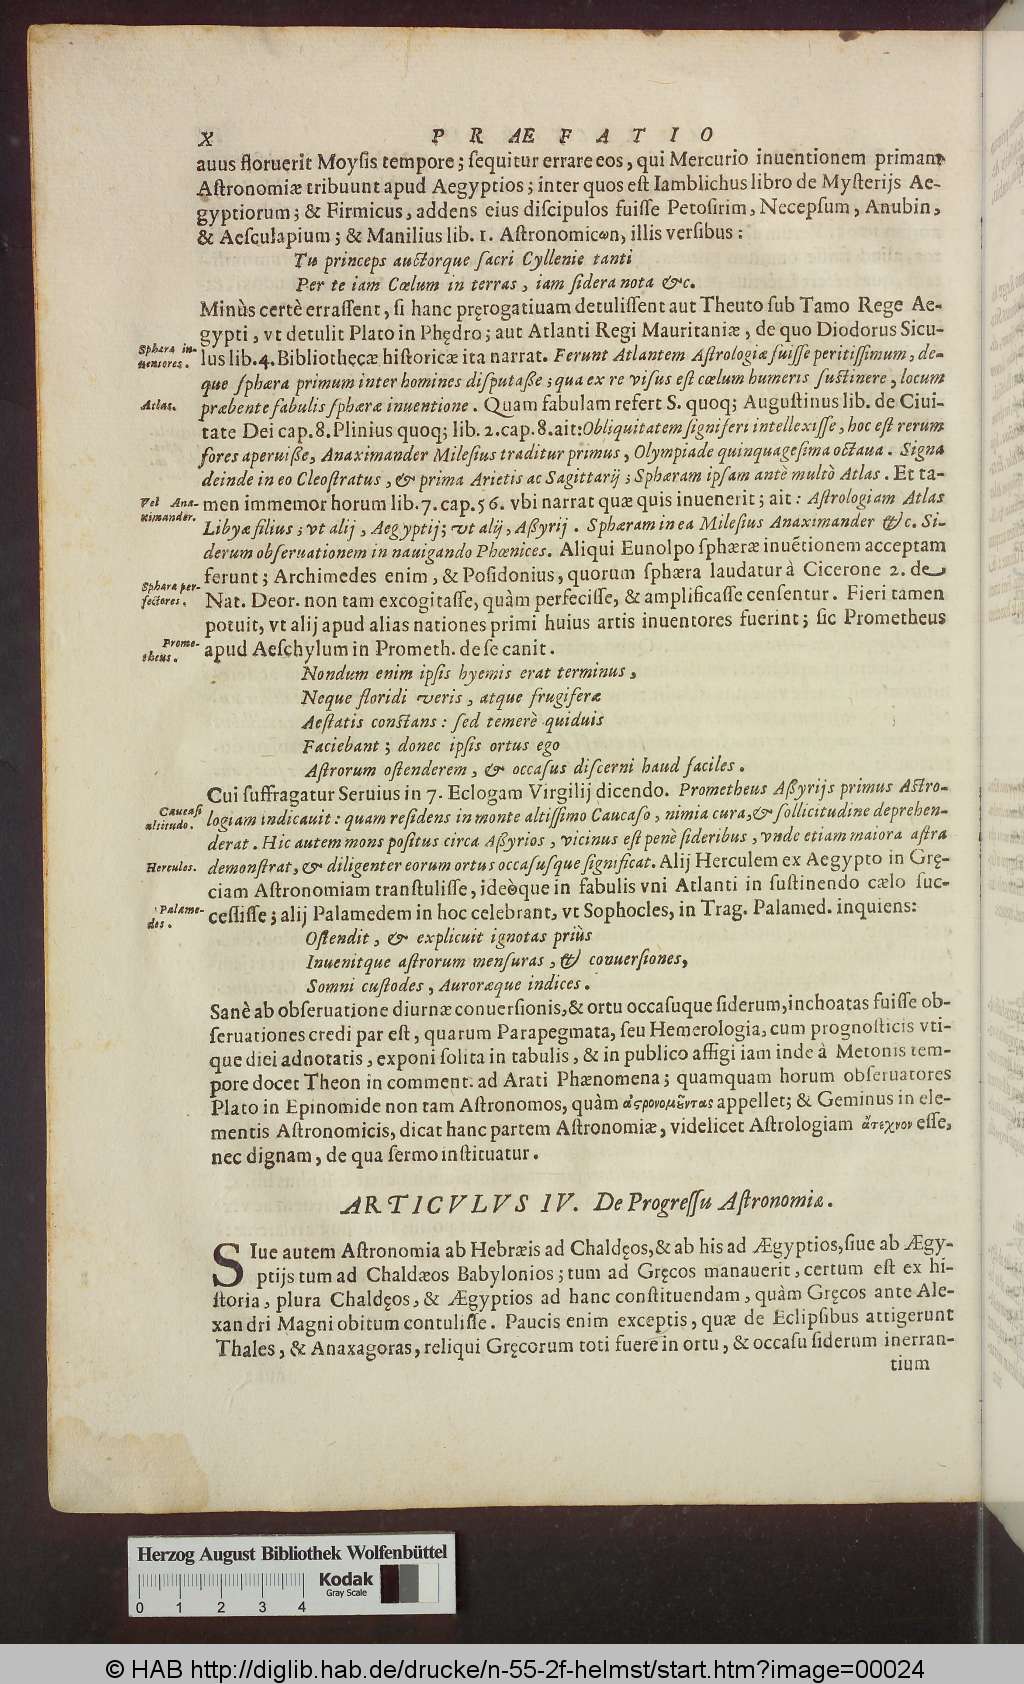 X P R Æ F A T I O
auus floruerit Moysis tempore; sequitur errare eos, qui Mercurio inuentionem primam
Astronomiæ tribuunt apud Aegyptios; inter quos est Iamblichus libro de Mysterijs Ae-
gyptiorum; & Firmicus, addens eius discipulos fuisse Petosirim, Necepsum, Anubin,
& Aesculapium; & Manilius lib. 1. Astronomicωn, illis versibus:
Tu princeps auctorque sacri Cyllenie tanti
Per te iam Cœlum in terras, iam sidera nota &c.
Minùs certè errassent, si hanc pręrogatiuam detulissent aut Theuto sub Tamo Rege Ae-
gypti, vt detulit Plato in Phędro; aut Atlanti Regi Mauritaniæ, de quo Diodorus Sicu-
Sphæra in-
uentores.
lus lib. 4. Bibliothecæ historicæ ita narrat. Ferunt Atlantem Astrologiæ fuisse peritissimum, de-
que sphæra primum inter homines disputaße; qua ex re visus est cœlum humeris sustinere, locum
Atlas.
præbente fabulis sphæræ inuentione. Quam fabulam refert S. quoq; Augustinus lib. de Ciui-
tate Dei cap. 8. Plinius quoq; lib. 2. cap. 8. ait: Obliquitatem signiferi intellexisse, hoc est rerum
fores aperuiße, Anaximander Milesius traditur primus, Olympiade quinquagesima octaua. Signa
deinde in eo Cleostratus, & prima Arietis ac Sagittarij; Sphæram ipsam antè multò Atlas. Et ta-
Vel Ana-
ximander.
men immemor horum lib. 7. cap. 56. vbi narrat quæ quis inuenerit; ait: Astrologiam Atlas
Libyæ filius; vt alij, Aegyptij; vt alij, Aßyrij. Sphæram in ea Milesius Anaximander &c. Si-
derum obseruationem in nauigando Phœnices. Aliqui Eunolpo sphæræ inuẽtionem acceptam
ferunt; Archimedes enim, & Posidonius, quorum sphæra laudatur à Cicerone 2. de
Sphæra per-
fectores.
Nat. Deor. non tam excogitasse, quàm perfecisse, & amplificasse censentur. Fieri tamen
potuit, vt alij apud alias nationes primi huius artis inuentores fuerint; sic Prometheus
Prome-
theus.
apud Aeschylum in Prometh. de se canit.
Nondum enim ipsis hyemis erat terminus,
Neque floridi veris, atque frugiferæ
Aestatis constans: sed temerè quiduis
Faciebant; donec ipsis ortus ego
Astrorum ostenderem, & occasus discerni haud faciles.
Cui suffragatur Seruius in 7. Eclogam Virgilij dicendo. Prometheus Aßyrijs primus Astro-
Caucasi
altitudo.
logiam indicauit: quam residens in monte altissimo Caucaso, nimia cura, & sollicitudine deprehen-
derat. Hic autem mons positus circa Aßyrios, vicinus est penè sideribus, vnde etiam maiora astra
Hercules.
demonstrat, & diligenter eorum ortus occasusque significat. Alij Herculem ex Aegypto in Grę-
ciam Astronomiam transtulisse, ideòque in fabulis vni Atlanti in sustinendo cælo suc-
Palame-
des.
cessisse; alij Palamedem in hoc celebrant, vt Sophocles, in Trag. Palamed. inquiens:
Ostendit, & explicuit ignotas priùs
Inuenitque astrorum mensuras, & conuersiones,
Somni custodes, Auroræque indices.
Sanè ab obseruatione diurnæ conuersionis, & ortu occasuque siderum, inchoatas fuisse ob-
seruationes credi par est, quarum Parapegmata, seu Hemerologia, cum prognosticis vti-
que diei adnotatis, exponi solita in tabulis, & in publico affigi iam inde à Metonis tem-
pore docet Theon in comment. ad Arati Phænomena; quamquam horum obseruatores
Plato in Epinomide non tam Astronomos, quàm ἀςρονομȣ̃ντας appellet; & Geminus in ele-
mentis Astronomicis, dicat hanc partem Astronomiæ, videlicet Astrologiam ἄτεχνον esse,
nec dignam, de qua sermo instituatur.
ARTICVLVS IV. De Progressu Astronomiæ.
SIue autem Astronomia ab Hebræis ad Chaldęos, & ab his ad Ægyptios, siue ab Ægy-
ptijs tum ad Chaldæos Babylonios; tum ad Gręcos manauerit, certum est ex hi-
storia, plura Chaldęos, & Ægyptios ad hanc constituendam, quàm Gręcos ante Ale-
xandri Magni obitum contulisse. Paucis enim exceptis, quæ de Eclipsibus attigerunt
Thales, & Anaxagoras, reliqui Gręcorum toti fuere in ortu, & occasu siderum inerran-
tium
Herzog August Bibliothek Wolfenbüttel
Kodak
Gray Scale
0 1 2 3 4
© HAB http://diglib.hab.de/drucke/n-55-2f-helmst/start.htm?image=00024